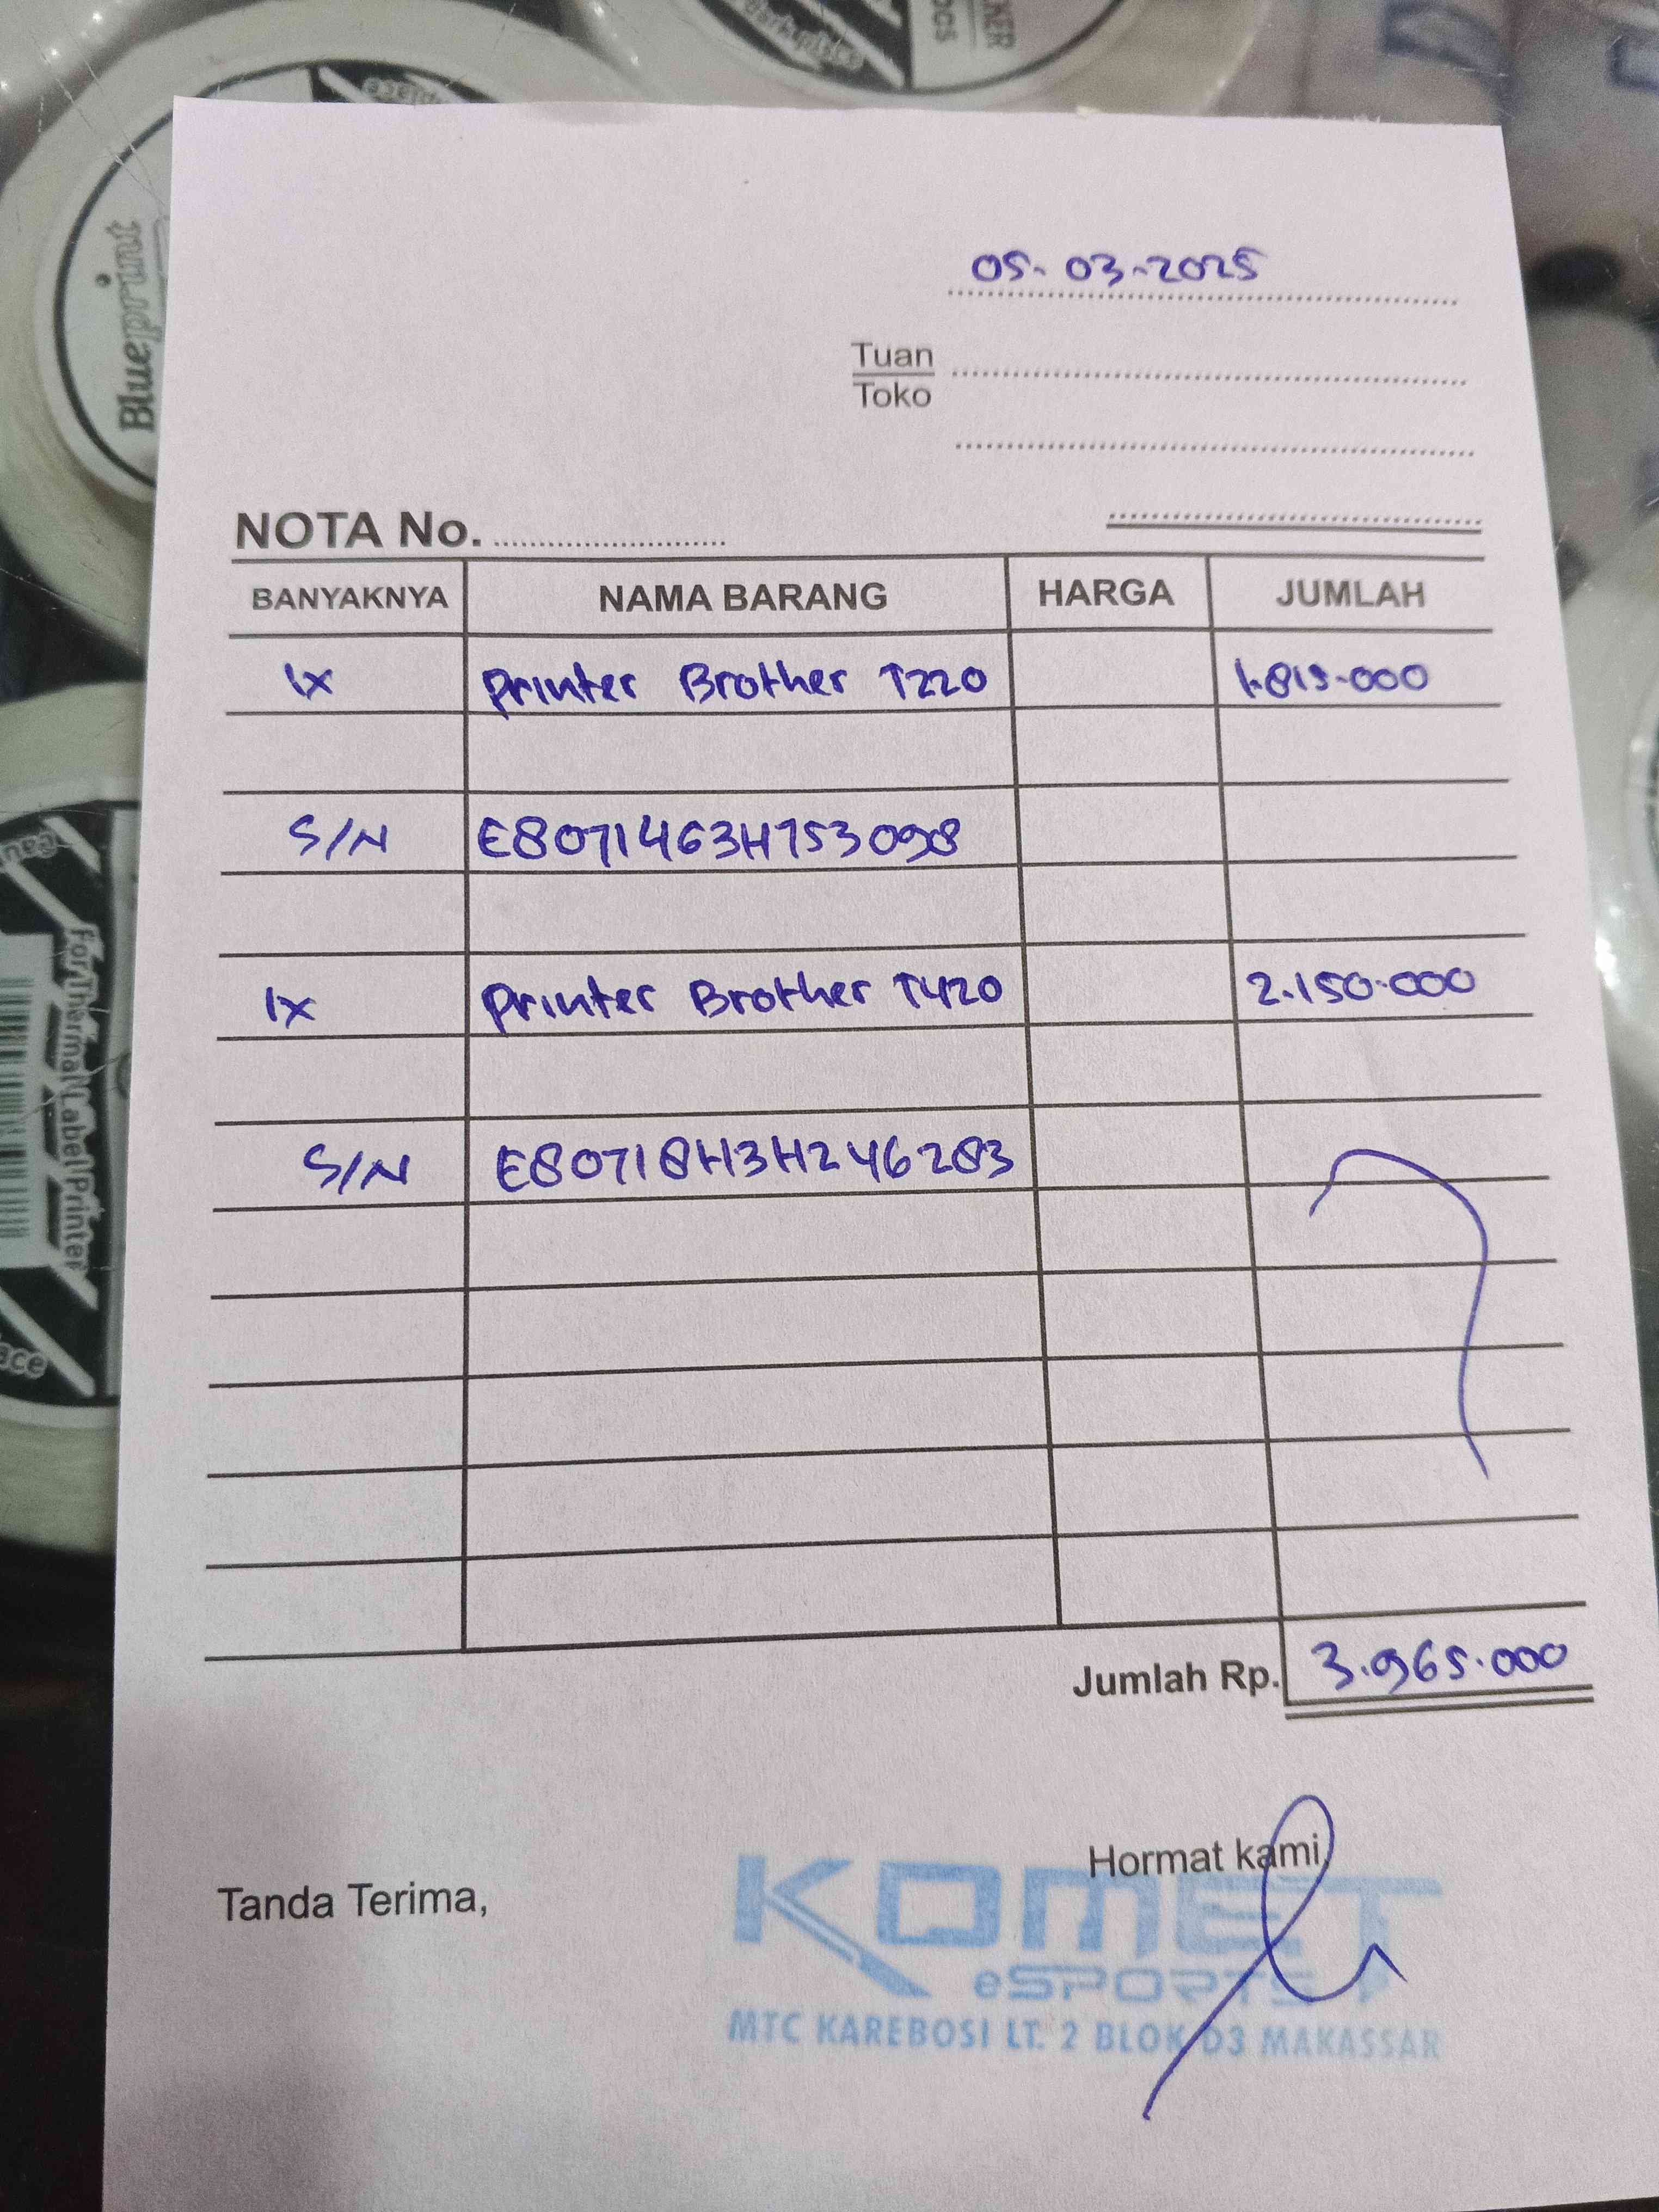 Blueprint
For Thermal Label Printer
05-03-2025
Tuan
Toko
NOTA No.
BANYAKNYA NAMA BARANG HARGA JUMLAH
1x Printer Brother T220 1.815.000
S/N E80714G3H753098
1x Printer Brother T420 2.150.000
S/N E80718H3H246283
Jumlah Rp. 3.965.000
Tanda Terima,
Hormat kami,
KOMET
eSPORTS
MTC KAREBOSI LT. 2 BLOK D3 MAKASSAR